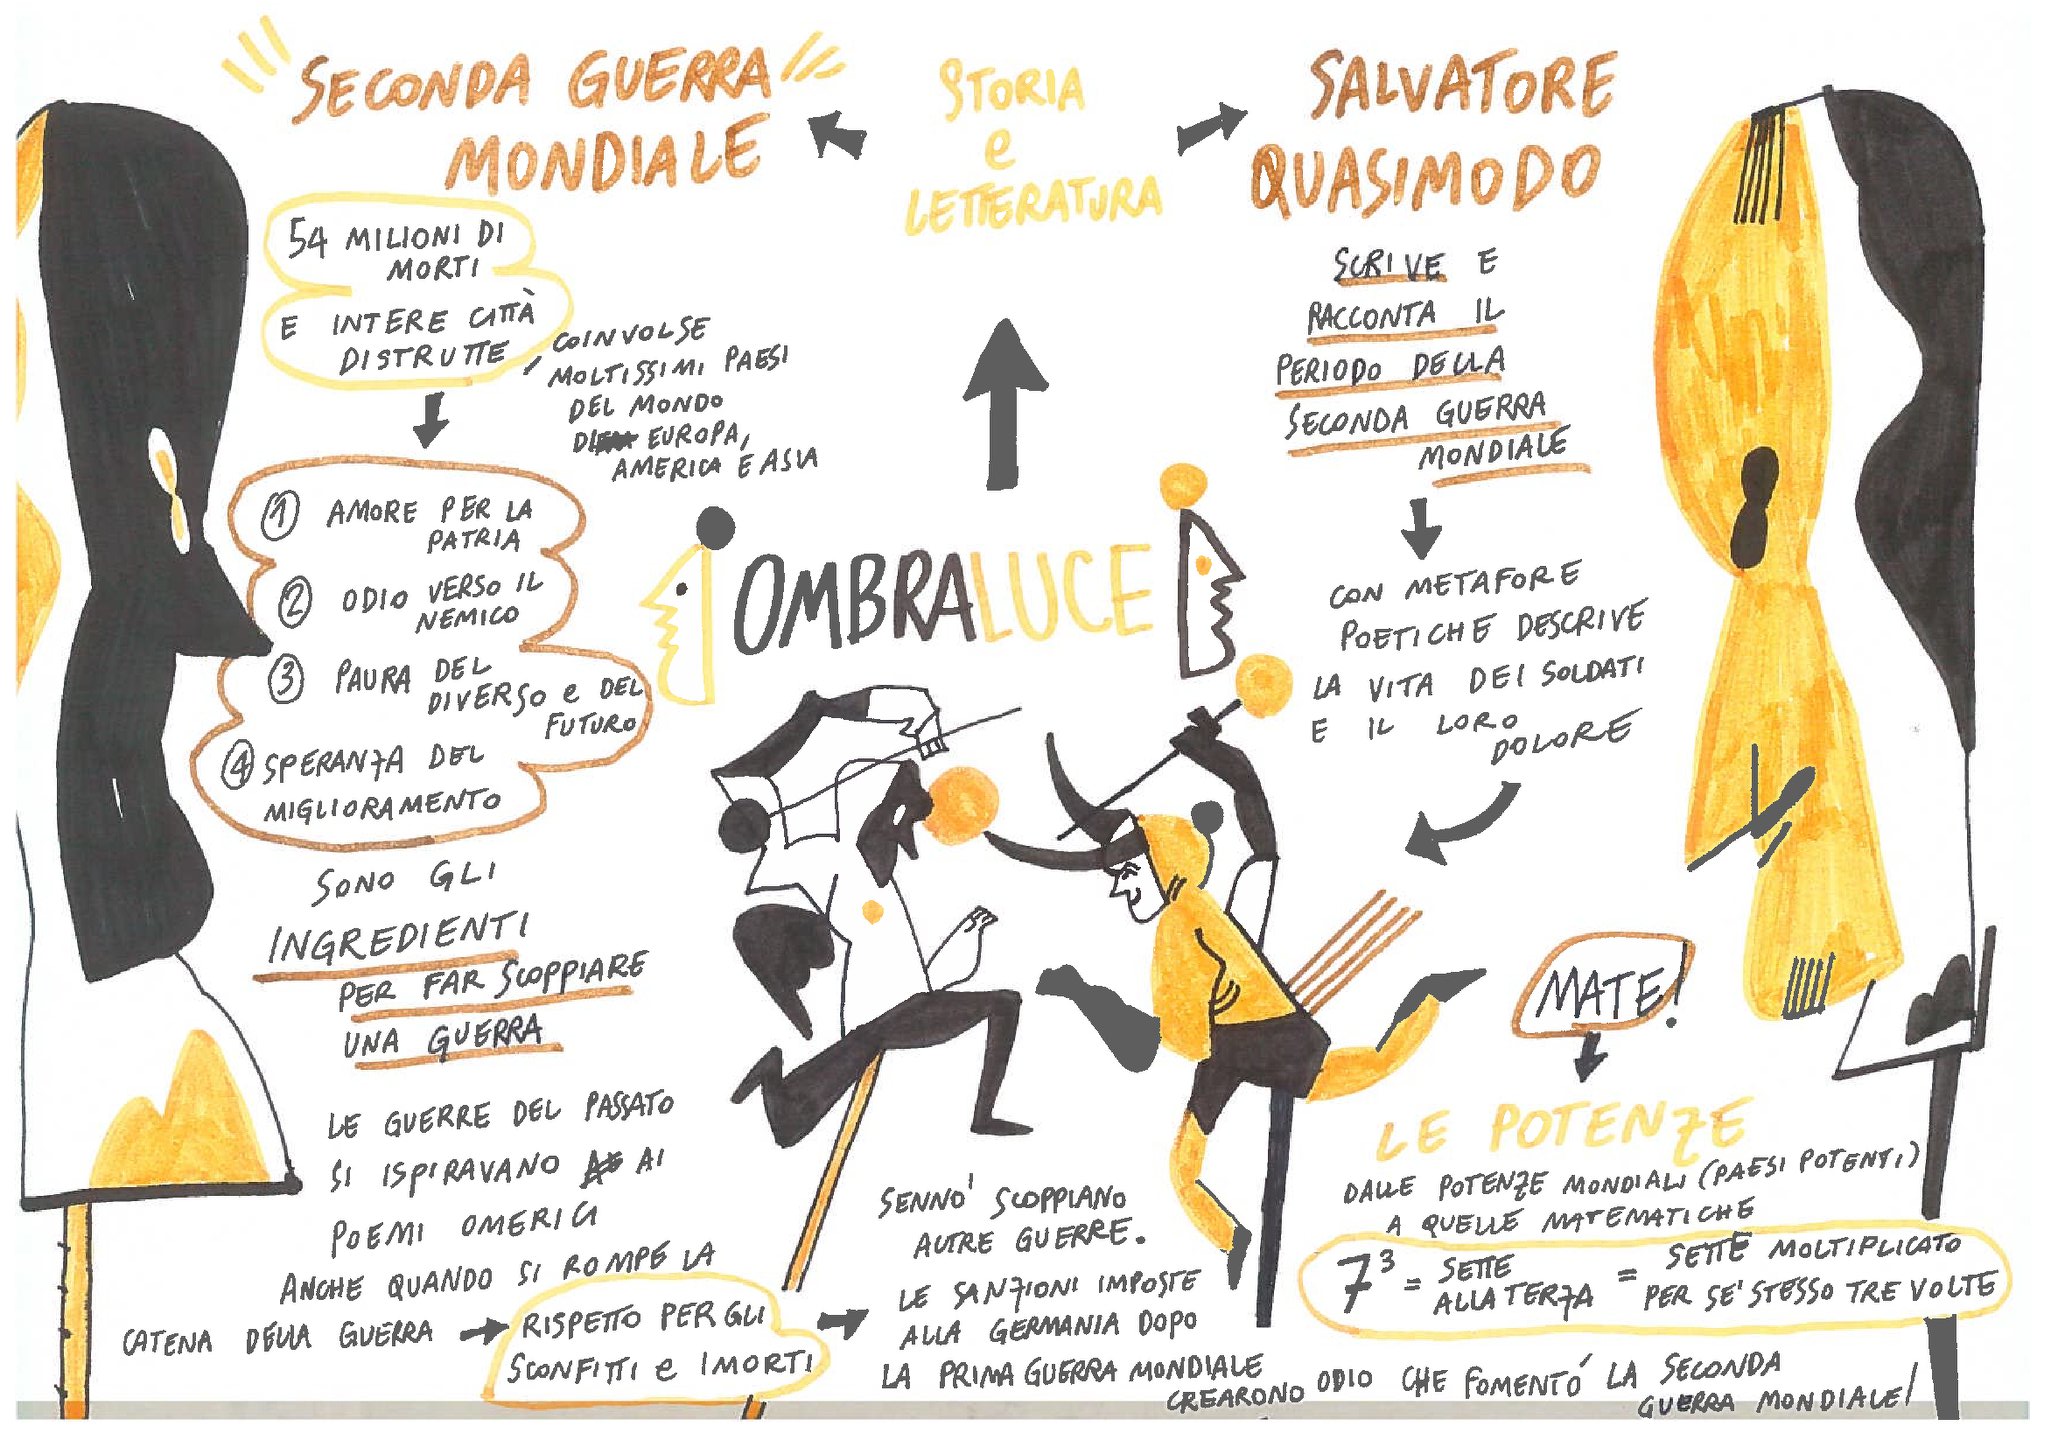 SECONDA GUERRA
MONDIALE
STORIA
e
LETTERATURA
SALVATORE
QUASIMODO
54 MILIONI DI
MORTI
E INTERE CITTÀ
DISTRUTTE,
COINVOLSE
MOLTISSIMI PAESI
DEL MONDO
DI EUROPA,
AMERICA E ASIA
① AMORE PER LA
PATRIA
② ODIO VERSO IL
NEMICO
③ PAURA DEL
DIVERSO e DEL
FUTURO
④ SPERANZA DEL
MIGLIORAMENTO
SONO GLI
INGREDIENTI
PER FAR SCOPPIARE
UNA GUERRA
LE GUERRE DEL PASSATO
SI ISPIRAVANO AI
POEMI OMERICI
ANCHE QUANDO SI ROMPE LA
CATENA DELLA GUERRA
RISPETTO PER GLI
SCONFITTI e I MORTI
OMBRALUCE
SCRIVE E
RACCONTA IL
PERIODO DELLA
SECONDA GUERRA
MONDIALE
CON METAFORE
POETICHE DESCRIVE
LA VITA DEI SOLDATI
E IL LORO
DOLORE
MATE!
LE POTENZE
DALLE POTENZE MONDIALI (PAESI POTENTI)
A QUELLE MATEMATICHE
7³ = SETTE ALLA TERZA = SETTE MOLTIPLICATO
PER SE' STESSO TRE VOLTE
SENNO' SCOPPIANO
ALTRE GUERRE.
LE SANZIONI IMPOSTE
ALLA GERMANIA DOPO
LA PRIMA GUERRA MONDIALE
CREARONO ODIO CHE FOMENTO' LA SECONDA
GUERRA MONDIALE!